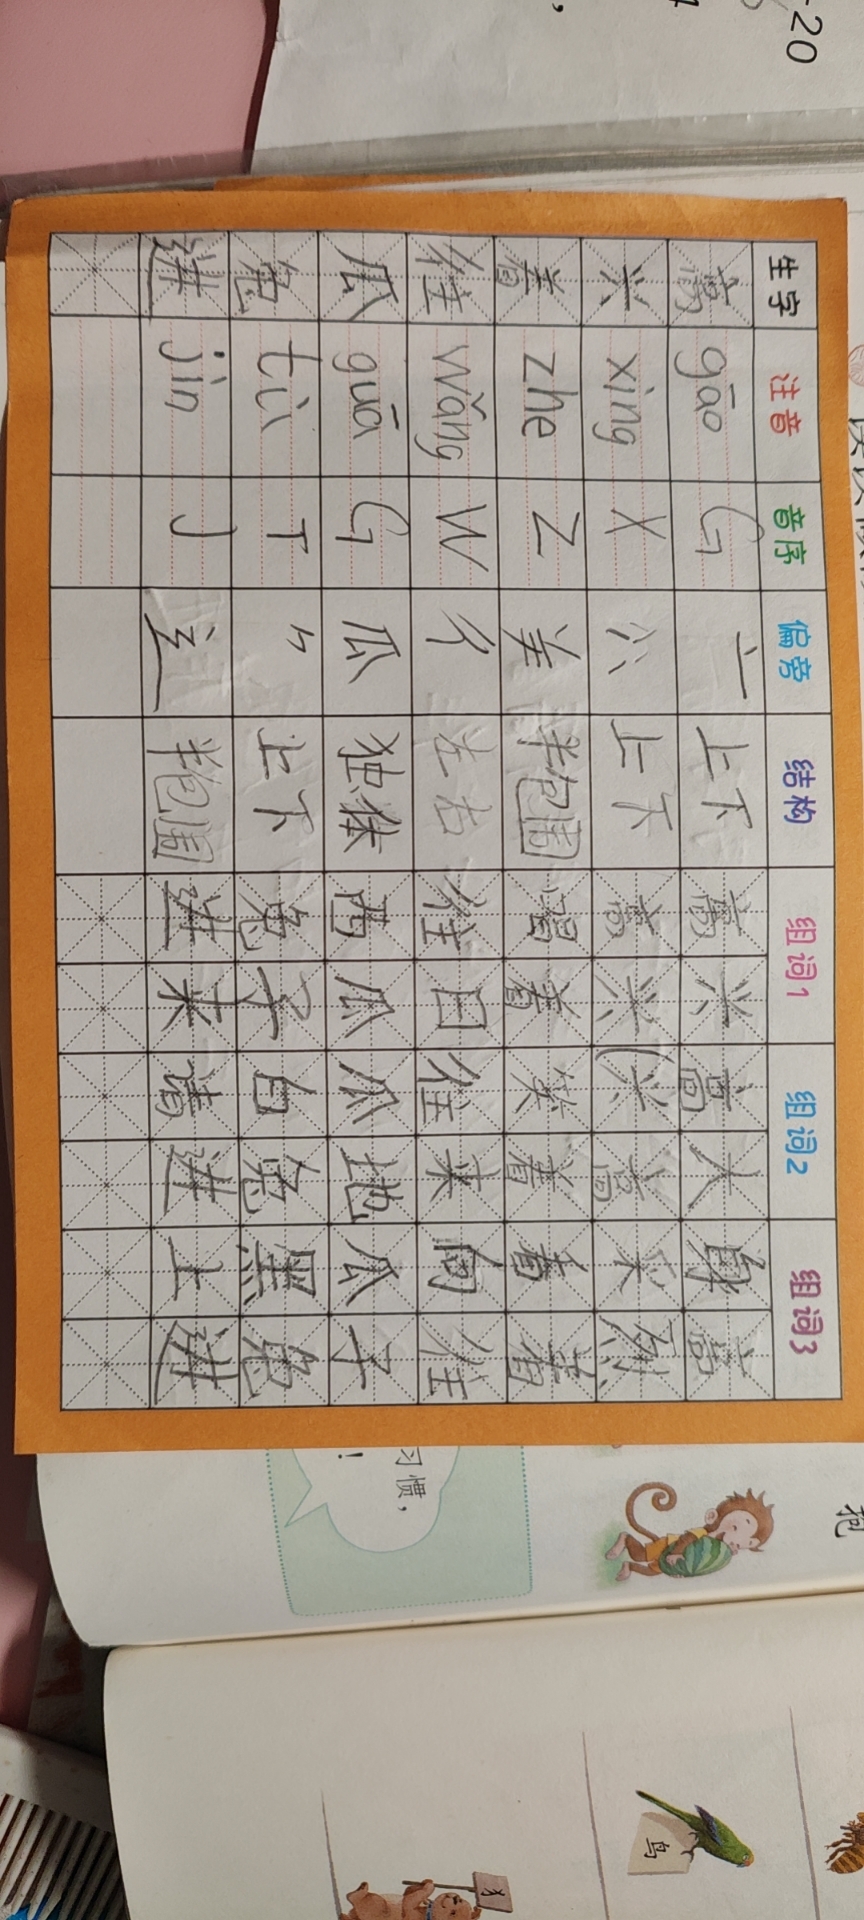 -20
生字 注音 音序 偏旁 结构 组词1 组词2 组词3
高 gāo G 亠 上下 高兴 高大 身高
兴 xìng X 八 上下 高兴 兴高采烈
着 zhe Z 半包围 唱着 笑着 看着
往 wǎng W 彳 左右 往日 往来 向往
瓜 guā G 瓜 独体 西瓜 瓜地 瓜子
兔 tù T ⺈ 上下 兔子 白兔 黑兔
进 jìn J 辶 半包围 进来 请进 上进
习惯,
!
鸟